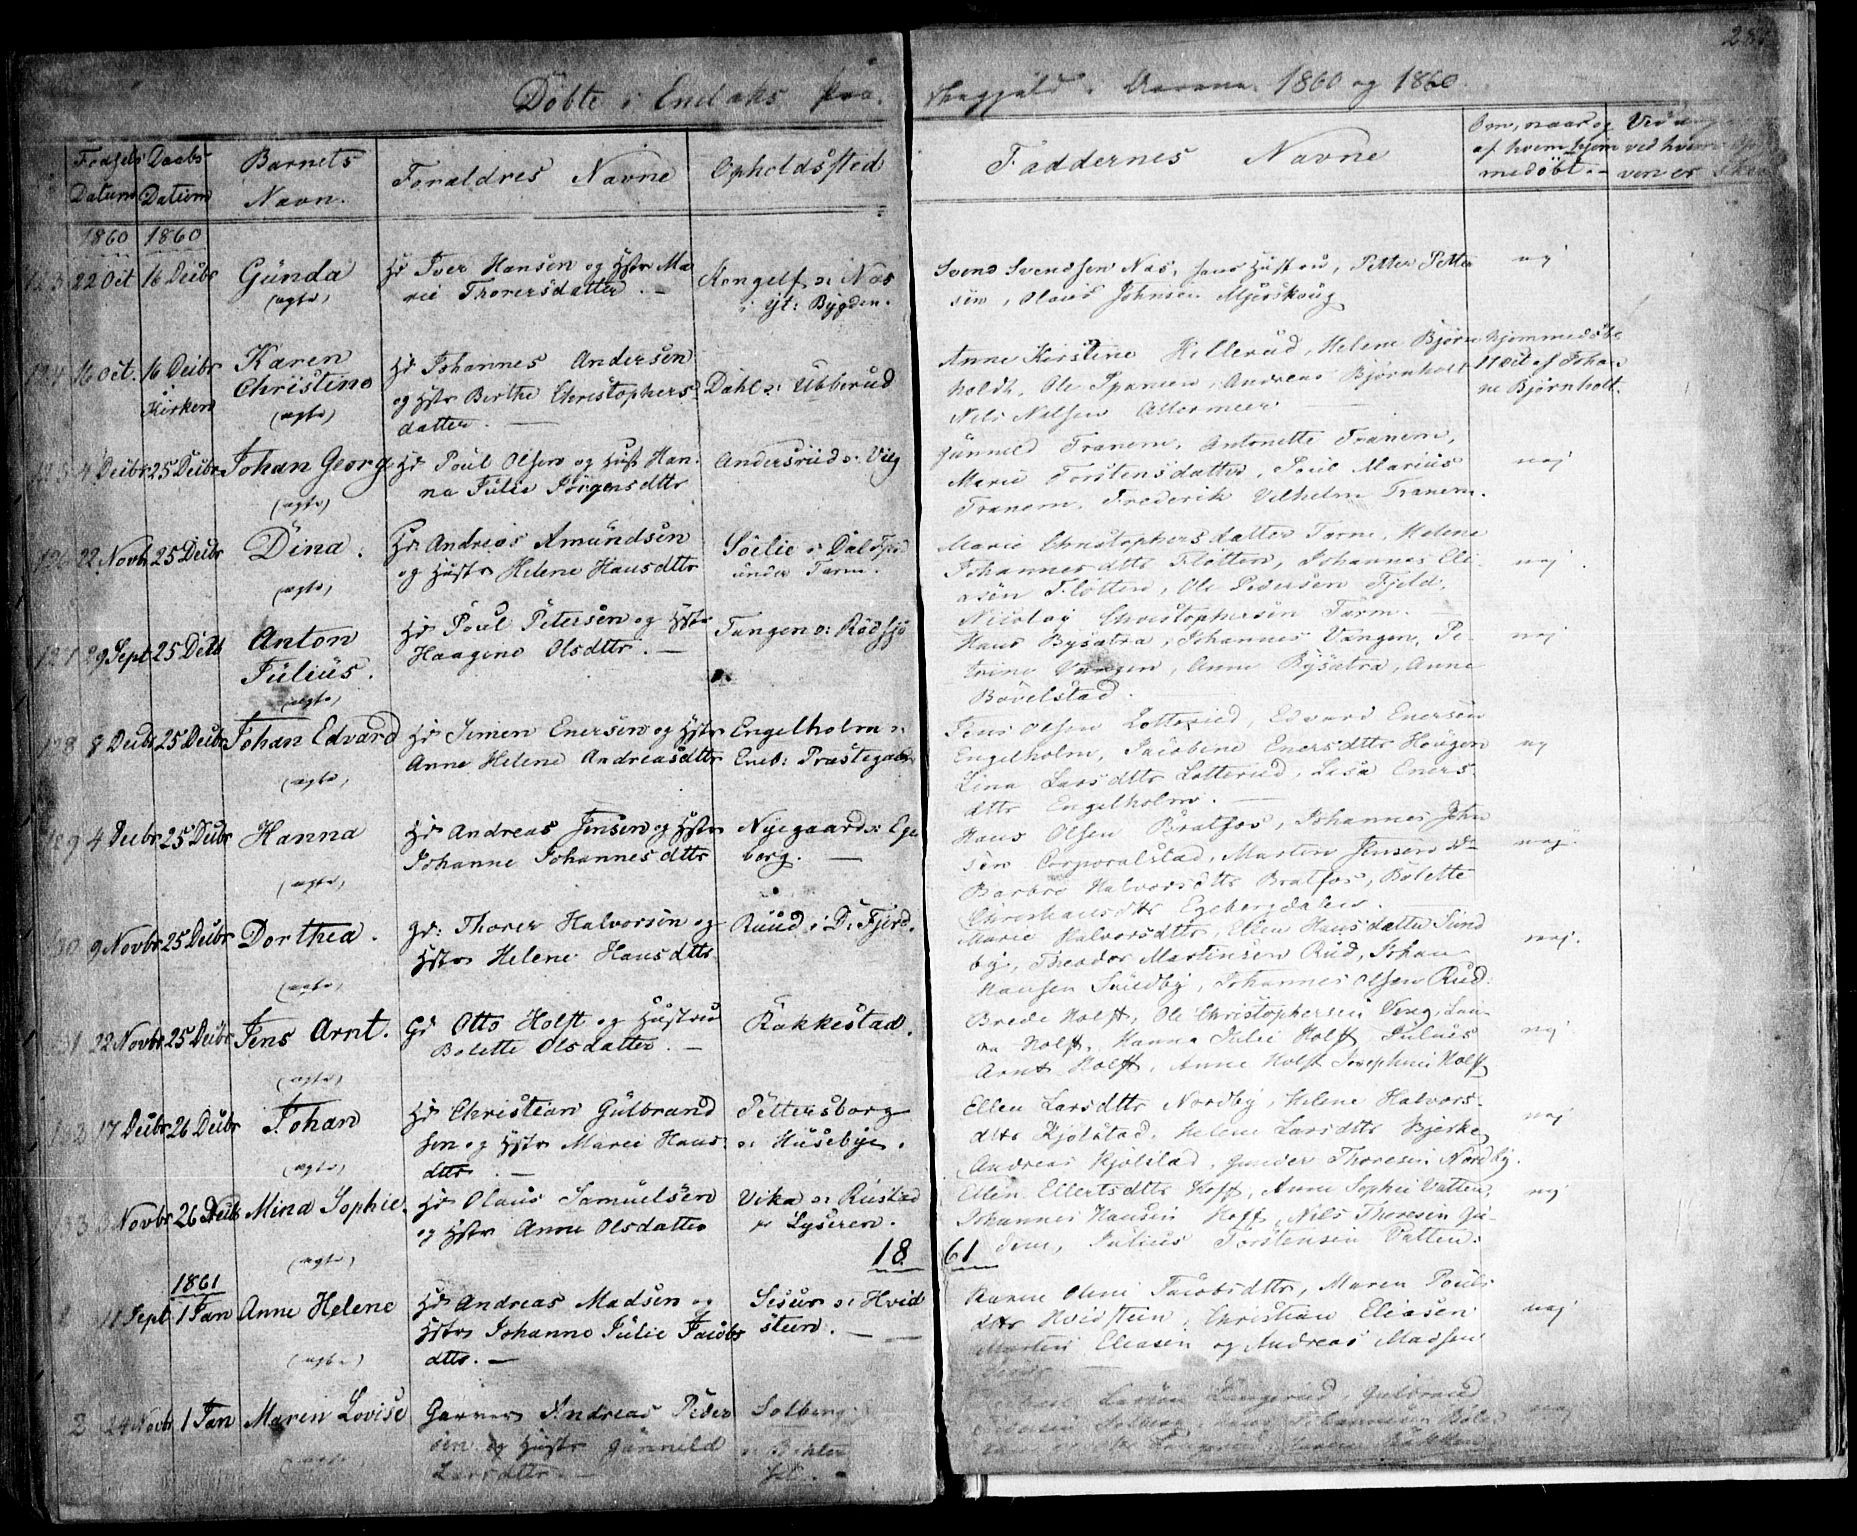 Döbte i Enebaks Præ
stegjeld i Aarene 1860 og 1860.
Fødsels Datum
Daabs Datum
Barnets Navn.
Foraldres Navne
Opholdssted
Faddernes Navne
Om, naar og
af hvem hjem
medöbt.
1860 1860
123 22 Oct 16 Decbr Gunda
(ægte)
Hd Iver Hansen og Hstr Ma
rie Thorersdatter. —
i yt: Bygden.
Svend Svendsen Næs, hans Hustru, Petter Petter
sen, Olaus Johnsen Mjerskoug
nej
124 16 Oct. 16 Decbr
Kirken
Karen
Christine
(ægte)
Hd Johannes Andersen
og Hstr Berthe Christophers
datter. —
Dahl o: Ubberud
Anne Kirstine Hillerud, Helene Bjørn
holdt, Ole Spaneen, Andreas Bjørnholt
Nils Nilsen
hjemmedöbt
11 Oct af Joha
ne Bjørnholt.
125 4 Decbr 25 Decbr Johan Georg
(ægte)
Hd Poul Olsen og Hust Han
na Julie Jörgensdttr
Andersrud o: Vaag
Gunnild Tranem, Antonette Tranem,
Marie Torstensdatter, Poul Marius
Tranem, Frederik Vilhelm Tranem.
nej
126 22 Novbr 25 Decbr Dina.
(ægte)
Hd Andreas Amundsen
og Hustr Helene Hansdttr
under Tarm.
Marie Christophersdatter Tarm, Helene
Johannesdttr Flötten, Johannes Eli-
asön Flötten, Ole Pedersen Fjeld,
Nicolay Christophersen Tarm.
nej
127 29 Sept 25 Decbr Anton
Julius.
(ægte)
Hd Poul Petersen og Hstr
Haagene Olsdttr. —
Tangen o: Rødsjø
Hans Bysætra, Johannes Vangen, Pe-
trine Vangen, Anne Bysætra, Anne
Bövelstad.
nej
128 8 Decbr 25 Decbr Johan Edvard
(ægte)
Hd Simen Enersen og Hstr
Anne Helene Andreasdttr
Engelholm o:
Eneb: Præstegaard
Jens Olsen Lotterud, Edvard Enersen
Engelholm, Jacobine Enersdttr Hougen
Lina Larsdttr Lotterud, Lisa Eners
dttr Engelholm. —
nej
129 4 Decbr 25 Decbr Hanna
(ægte)
Hd Andreas Jensen og Hstr
Johanne Johannesdttr
Nyegaard o: Ege
berg. —
Hans Olsen Bratfos, Johannes John
sen Corporalstad, Martin Jensen
Barbro Halvorsdttr Bratfos, Bolette
Christiansdttr Egebergdalen.
nej
130 9 Novbr 25 Decbr Dorthea.
(ægte)
Gd: Thorer Halvorsen og
Hstr Helene Hansdttr
Ruud i D: Fjerd.
Marie Halvorsdttr, Ellen Hansdatter Sund
by, Theodor Martinsen Rud, Johan
Hansen Sundby, Johannes Olsen Rud.
nej.
131 22 Novbr 25 Decbr Jens Arnt.
(ægte)
Gd Otto Holst og Hustru
Bolette Olsdatter. —
Rakkestad.
Brede Holst, Ole Christophersen Veng, Lau
ra Holst, Hanna Julie Holst Julius
Arnt Holst, Anne Holst Josephine Holst
nej
132 17 Decbr 26 Decbr Johan
(ægte)
Hd Christian Gulbrand
sen og Hstr Marie Hans
dttr. —
Pettersborg
o: Husebye.
Ellen Larsdttr Nordby, Helene Halvors-
dttr Kjölstad, Helene Larsdttr Bjerke,
Andreas Kjölstad, Gunder Thoresen Nordby.
nej
133 Novbr 26 Decbr Mina Sophie.
(ægte)
Hd Olaus Samuelsen
og Hstr Anne Olsdatter
Vika o: Rustad
v Lyseren.
Ellen Ellertsdttr Hoff, Anne Sophie Vatten,
Johannes Hansen Hoff, Nils Thoresen Gu-
dim, Julius Torstensen Vatten.
nej
18 61
1861
1 11 Sept 1 Jan Anne Helene
(ægte)
Hd Andreas Madsen og
Hstr Johanne Julie Jacobs
dttr. —
o: Hvid
steen. —
Karen Oline Jacobsdttr, Maren Pouls
dttr Hvidsteen, Christian Eliasen
Martin Eliasen og Andreas Madsen
nej
2 24 Novbr 1 Jan Maren Lovise
(ægte)
Garver Andreas Peder
sen og Hustr Gunnild
Larsdttr. —
Solberg
Larsen Langerud, Gulbrand
nej